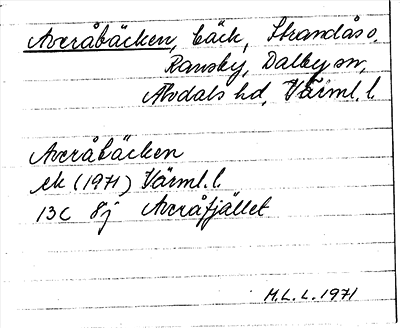 Averåbäcken, bäck, Strandås o.
Ransby, Dalby sn,
Älvdals hd, Värml. l.
Averåbäcken
ek (1971) Värml. l.
13C 8j Averåfjället
M.L.L. 1971